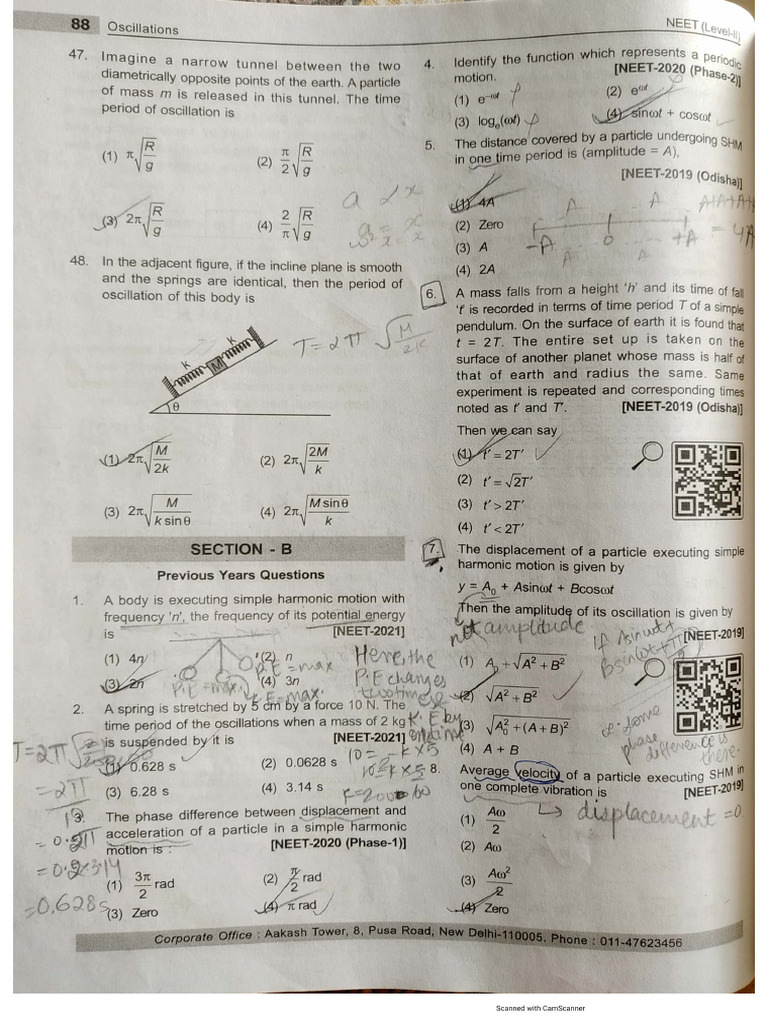 88 Oscillations
NEET (Level-II)
47. Imagine a narrow tunnel between the two
diametrically opposite points of the earth. A particle
of mass m is released in this tunnel. The time
period of oscillation is
(1) π√(R/g)
(2) π/2 √(R/g)
(3) 2π√(R/g)
(4) 2/π √(R/g)
a α x
48. In the adjacent figure, if the incline plane is smooth
and the springs are identical, then the period of
oscillation of this body is
K
M
K
θ
T = 2π √(M/2K)
(1) 2π√(M/2k)
(2) 2π√(2M/k)
(3) 2π√(M/(k sinθ))
(4) 2π√(M sinθ/k)
SECTION - B
Previous Years Questions
1. A body is executing simple harmonic motion with
frequency 'n', the frequency of its potential energy
is [NEET-2021]
(1) 4n
(2) n
(3) 2n
(4) 3n
P.E = max
P.E = max
K.E = max.
Here, the
P.E changes
two times
K.E by
one time
2. A spring is stretched by 5 cm by a force 10 N. The
time period of the oscillations when a mass of 2 kg
is suspended by it is [NEET-2021]
(1) 0.628 s
(2) 0.0628 s
(3) 6.28 s
(4) 3.14 s
10 = -k×5
T=2π
= 2π
10
= 0.2π
= 0.2×3.14
=0.628s
3. The phase difference between displacement and
acceleration of a particle in a simple harmonic
motion is : [NEET-2020 (Phase-1)]
(1) 3π/2 rad
(2) π/2 rad
(3) Zero
(4) π rad
4. Identify the function which represents a periodic
motion. [NEET-2020 (Phase-2)]
(1) e^–ωt
(2) e^ωt
(3) logₑ(ωt)
(4) sinωt + cosωt
5. The distance covered by a particle undergoing SHM
in one time period is (amplitude = A),
[NEET-2019 (Odisha)]
(1) 4A
(2) Zero
(3) A
(4) 2A
A A A+A+A+A
-A 0 +A = 4A
A A
6. A mass falls from a height 'h' and its time of fall
't' is recorded in terms of time period T of a simple
pendulum. On the surface of earth it is found that
t = 2T. The entire set up is taken on the
surface of another planet whose mass is half of
that of earth and radius the same. Same
experiment is repeated and corresponding times
noted as t' and T'. [NEET-2019 (Odisha)]
Then we can say
(1) t' = 2T'
(2) t' = √2T'
(3) t' > 2T'
(4) t' < 2T'
7. The displacement of a particle executing simple
harmonic motion is given by
y = A₀ + Asinωt + Bcosωt
Then the amplitude of its oscillation is given by
[NEET-2019]
not amplitude
if Asinωt +
(1) A₀ + √(A² + B²)
(2) √(A² + B²)
(3) √(A₀² + (A + B)²)
(4) A + B
some
phase
difference is
there.
8. Average velocity of a particle executing SHM in
one complete vibration is [NEET-2019]
(1) Aω/2
(2) Aω
(3) Aω²/2
(4) Zero
displacement = 0
Corporate Office : Aakash Tower, 8, Pusa Road, New Delhi-110005. Phone : 011-47623456
Scanned with CamScanner